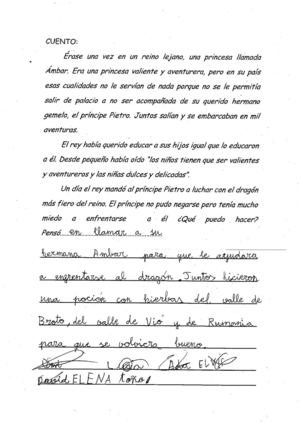 CUENTO:
Érase una vez en un reino lejano, una princesa llamada
Ámbar. Era una princesa valiente y aventurera, pero en su país
esas cualidades no le servían de nada porque no se le permitía
salir de palacio a no ser acompañada de su querido hermano
gemelo, el príncipe Pietro. Juntos salían y se embarcaban en mil
aventuras.
El rey había querido educar a sus hijos igual que lo educaron
a él. Desde pequeño había oído "los niños tienen que ser valientes
y aventureros y las niñas dulces y delicadas".
Un día el rey mandó al príncipe Pietro a luchar con el dragón
más fiero del reino. El príncipe no pudo negarse pero tenía mucho
miedo a enfrentarse a él ¿Qué puedo hacer?
Pensó en llamar a su
hermana Ambar para que le ayudara
a enfrentarse al dragón. Juntos hicieron
una poción con hierbas del valle de
Broto, del valle de Vió y de Rumania
para que se volviera bueno.
David ELENA